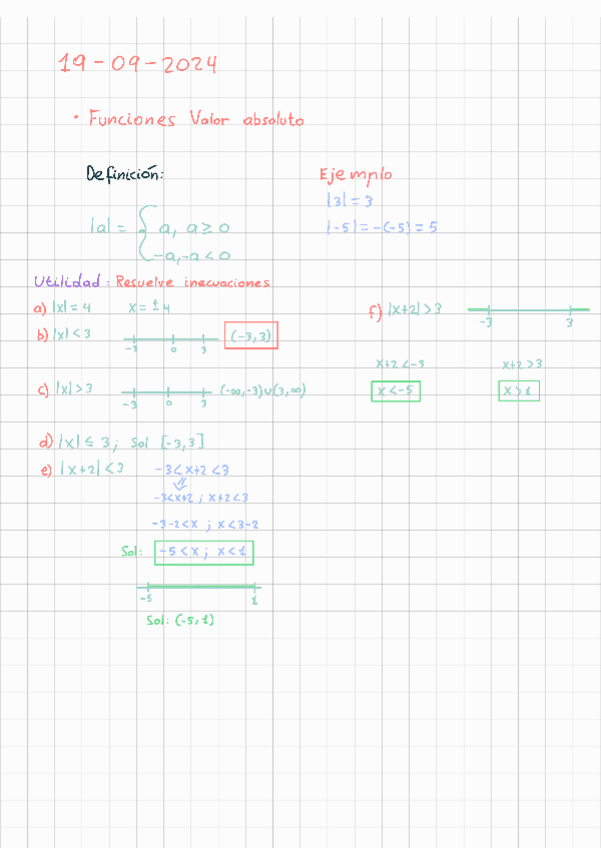 19-09-2024
• Funciones Valor absoluto
Definición:
|a| = { a, a ≥ 0
-a, -a < 0
Ejemplo
|3| = 3
|-5| = -(-5) = 5
Utilidad: Resuelve inecuaciones
a) |x| = 4 x = ± 4
b) |x| < 3 -3 0 3 (-3,3)
c) |x| > 3 -3 0 3 (-∞,-3)∪(3,∞)
d) |x| ≤ 3; Sol [-3,3]
e) |x+2| < 3 -3 < x+2 < 3
⇓
-3 < x+2 ; x+2 < 3
-3-2 < x ; x < 3-2
Sol: -5 < x ; x < 1
-5 1
Sol: (-5,1)
f) |x+2| > 3 -3 3
x+2 < -3 x+2 > 3
x < -5 x > 1